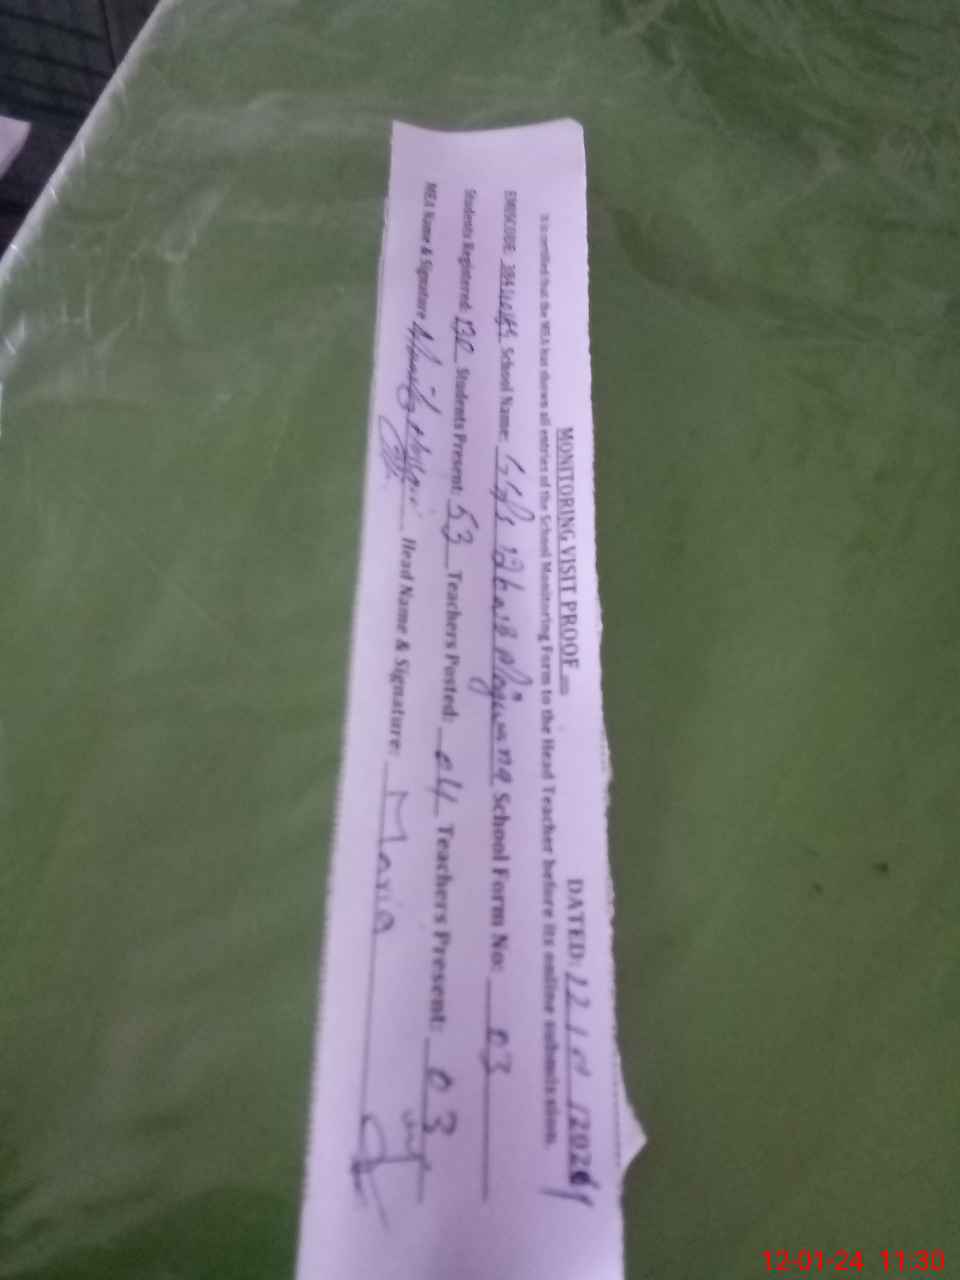 MONITORING VISIT PROOF
DATED: 12/01/2024
It is certified that the MEA has shown all entries of the School Monitoring Form to the Head Teacher before its online submission.
EMISCODE: School Name: School Form No: 03
Students Registered: 130 Students Present: 53 Teachers Posted: 04 Teachers Present: 03
MEA Name & Signature Head Name & Signature: Maria
12-01-24 11:30